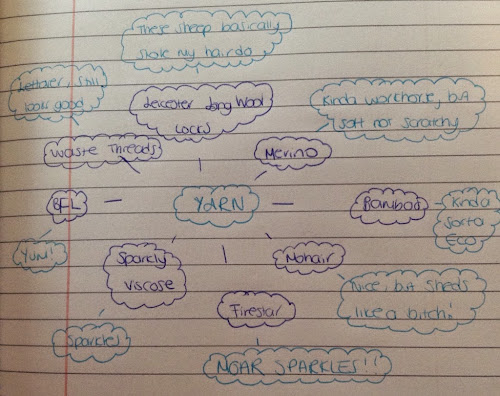 These sheep basically
stole my hairdo
Leftover, still
looks good
Leicester Long Wool
Locks
Kinda workhorse, bit
soft not scratchy
Waste Threads
Merino
BFL
YARN
Bamboo
Kinda
Sorta
Eco
YUM!
Sparkly
viscose
Mohair
Nice, bit sheds
like a bitch!
Firestar
Sparkles
MOAR SPARKLES!!